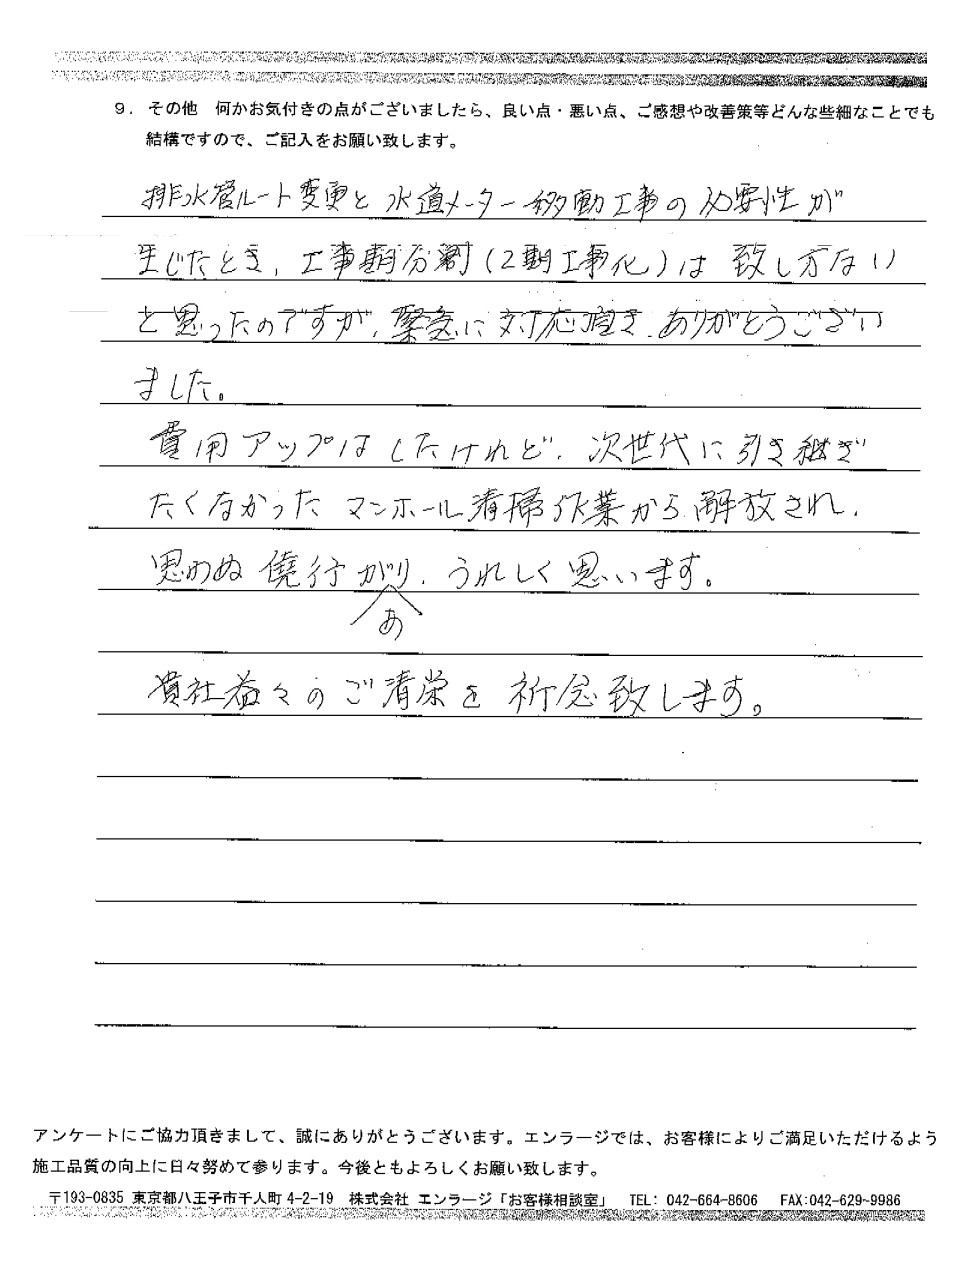 9. その他　何かお気付きの点がございましたら、良い点・悪い点、ご感想や改善策等どんな些細なことでも
結構ですので、ご記入をお願い致します。
排水管ルート変更と水道メーター移動工事の必要性が
生じたとき、工事期分割(2期工事化)は致し方ない
と思ったのですが、緊急に対応頂き、ありがとうござい
ました。
費用アップはしたけれど、次世代に引き継ぎ
たくなかったマンホール清掃作業から解放され、
思わぬ僥行があり、うれしく思います。
貴社益々のご清栄を祈念致します。
アンケートにご協力頂きまして、誠にありがとうございます。エンラージでは、お客様によりご満足いただけるよう
施工品質の向上に日々努めて参ります。今後ともよろしくお願い致します。
〒193-0835 東京都八王子市千人町 4-2-19　株式会社 エンラージ「お客様相談室」　TEL: 042-664-8606　FAX:042-629-9986